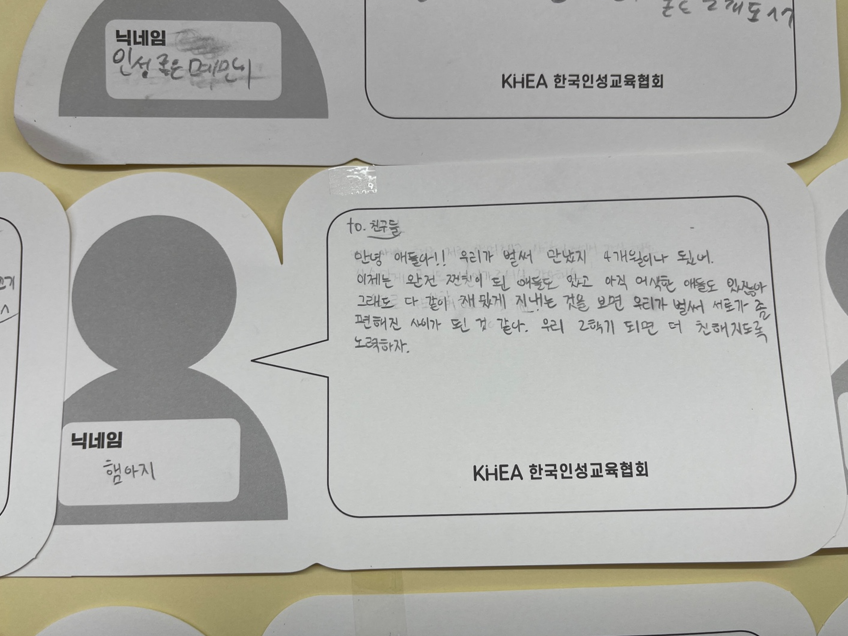 닉네임
인성 좋은
KHEA 한국인성교육협회
to. 친구들
안녕 얘들아!! 우리가 벌써 만난지 4개월이나 됐어.
이제는 완전 전친이 된 애들도 있고 아직 어색한 애들도 있잖아
그래도 다 같이 재밌게 지내는 것을 보면 우리가 벌써 서로가 좀
편해진 사이가 된 것 같다. 우리 2학기 되면 더 친해지도록
노력하자.
닉네임
햄아지
KHEA 한국인성교육협회